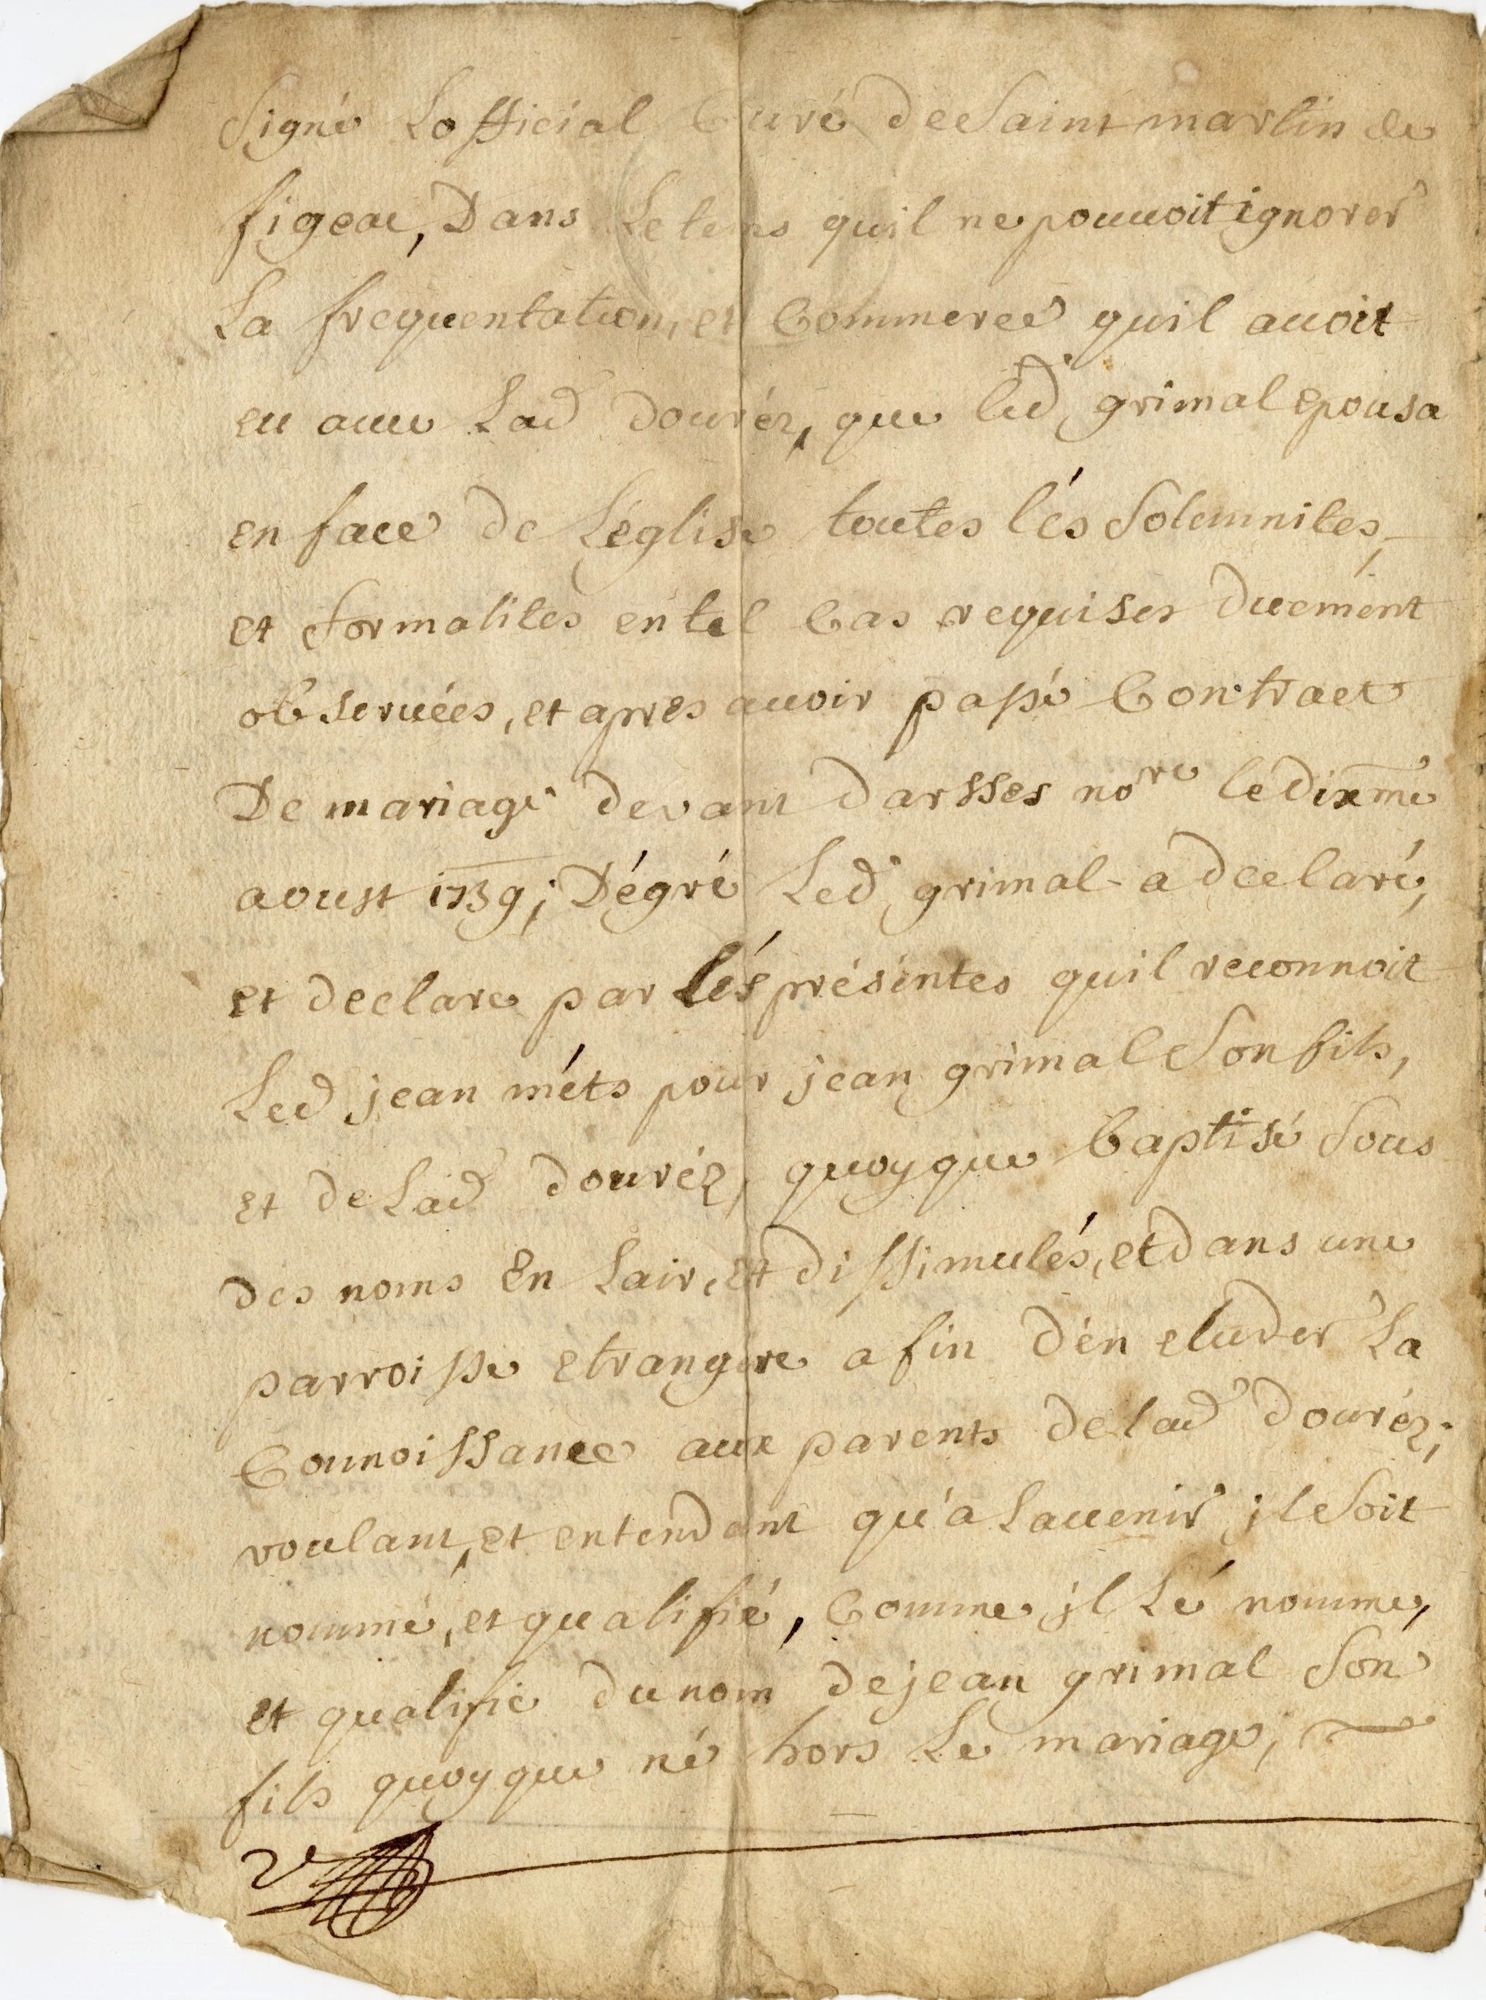 Signé Lofficial Curé de Saint martin de
figeac, Dans Letems quil ne pouuoit ignorer
La frequentation, et Commerce quil auoit
eu auec Lad douréz, que led grimal epousa
en face de Leglise toutes lés Solemnites,
et formalites en tel Cas requises duement
obseruées, et apres auoir passé Contract
De mariage devant darsses nore le dixme
aoust 1739; Dégré Led grimal a declaré,
et declare par lés préséntes quil reconnoit
Led jean méts pour jean grimal Son fils,
et de Lad douréz, quoyque baptisé Sous
des noms En Lair, et dissimulés, et dans une
parroisse etrangere afin d'én eluder La
Connoissance aux parents de lad douréz;
voulant, et entendant qu'a Lauenir jl Soit
nommé, et qualifié, Comme jl Lé nomme,
et qualifie du nom de jean grimal Son
fils quoyque né hors Le mariage;